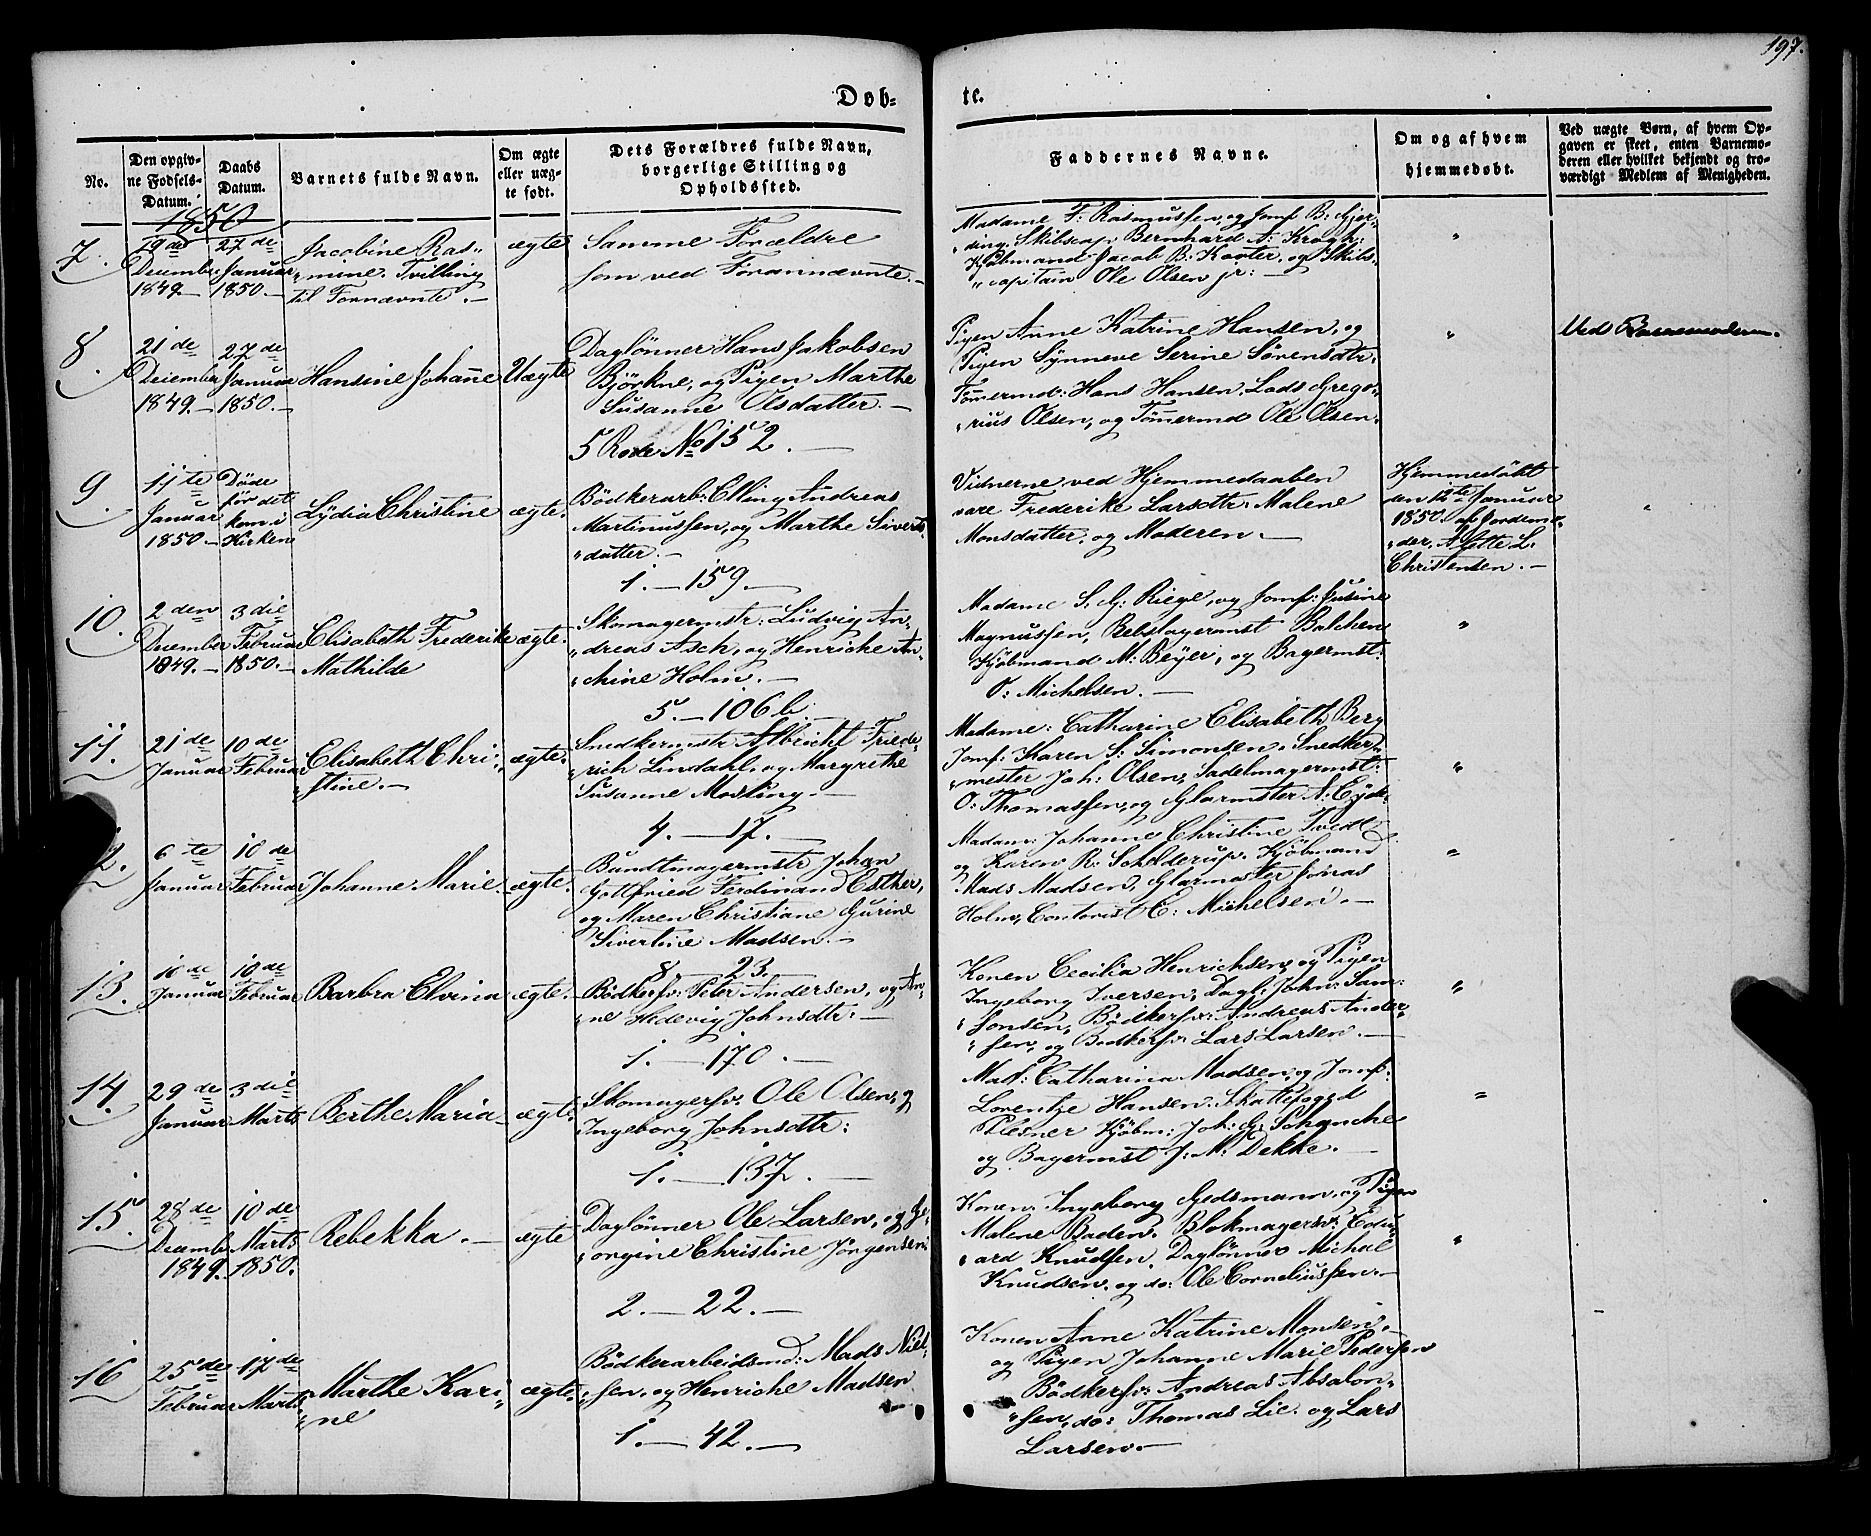 197.
Døb-
te.
No.
Den opgiv-
ne Fødsels-
Datum.
Daabs
Datum.
Barnets fulde Navn.
Om ægte
eller uæg-
te født.
Dets Forældres fulde Navn,
borgerlige Stilling og
Opholdssted.
Faddernes Navne.
Om og af hvem
hjemmedøbt.
Ved uægte Børn, af hvem Op-
gaven er skeet, enten Barnemo-
deren eller hvilket bekjendt og tro-
værdigt Medlem af Menigheden.
1850
7.
19de
December
1849
27de
Januar
1850
Jacobine Ras-
mine. Tvilling
til Fornævnte.
ægte
Samme Forældre
som ved Forannævnte.
Madame F. Rasmussen, og Jomf. B. Gjer-
ding. Skibscap. Bernhard A. Krogh.
Kjøbmand Jacob B. Kanter, og Skibs-
capitain Ole Olsen jr.
"
8.
21de
December
1849
27de
Januar
1850
Hansine Johanne
Uægte
Daglønner Hans Jakobsen
Björkne, og Pigen Marthe
Susanne Olsdatter.
5 Rode No 152.
Pigen Anne Katrine Hansen, og
Pigen Synneve Serine Sørensdtr.
Tømermd: Hans Hansen, Lods Grego-
rius Olsen, og Tømermd Ole Olsen.
"
Ved Barnemoderen.
9.
11te
Januar
1850
Døde
før det
kom i
Kirken
Lydia Christine
ægte.
Bödkerarb: Elling Andreas
Martinussen, og Marthe Siverts-
datter.
1. — 159.
Vidnerne ved Hjemmedaaben
vare Frederike Larsdtr. Malene
Monsdatter, og Moderen.
Hjemmedöbt
den 12te Januar
1850 af Jordemo-
der, Alette L.
Christensen.
"
10.
2den
December
1849.
3die
Februar
1850.
Elisabeth Frederike
Mathilde
ægte.
Skomagermstr: Ludvig An-
dreas Asch, og Henriche An-
chine Holm.
5. — 106 b.
Madame S. G. Riege, og Jomf: Jusine
Magnussen, Rebslagermst Balchen
Kjöbmand M: Beyer, og Bagermst:
O: Michelsen.
"
11.
21de
Januar
10de
Februar
Elisabeth Chri-
stine.
ægte.
Snedkermstr Albricht Friede-
rich Lindahl, og Margrethe
Susanne Mosling.
4. — 17.
Madame: Catharine Elisabeth Berg
Jomf: Karen S. Simonsen. Snedker-
mester Joh: Olsen, Sadelmagermst:
O: Thomassen, og Glarmster A: Eyde.
"
12.
6te
Januar
10de
Februar
Johanne Marie
ægte.
Bundtmagermstr Johan
Gottfried Ferdinand Esther,
og Maren Christiane Gurine
Sivertine Madsen.
8. 23.
Madam: Johanne Christine Tvedt
og Karen R: Schelderup. Kjöbmand
Mads Madsen, Glarmester Jonas
Holm, Contorist C: Michelsen.
"
13.
16de
Januar
10de
Februar
Barbra Elvina
ægte.
Bödkersv: Peter Andersen, og An-
ne Hedevig Johnsdtr:
1. — 170.
Konen Cecilia Henrichsen, og Pigen
Ingeborg Iversen, Dagl: John Sam-
sonsen, Bödkersv: Andreas Ander-
sen, og Bødkersv: Lars Larsen.
"
14.
29de
Januar
3die
Marts
Berthe Maria
ægte.
Skomagersv: Ole Olsen, og
Ingeborg Johnsdtr:
1. — 137.
Mad: Catharina Madsen, og Jomf:
Lorentze Hansen. Skattefogd
Plesner Kjöbm: Joh: G: Schanche
og Bagermst J: M: Dekke.
"
15.
28de
December
1849.
10de
Marts
1850.
Rebekka.
ægte
Daglønner Ole Larsen, og Ge-
orgine Christine Jörgensen
2. — 22.
Konen Ingeborg Gedsmann, og Pigen
Malene Baden. Blokmagersv: Edu-
ard Knudsen. Daglønner Michal
Knudsen, og do: Ole Corneliussen.
"
16
25de
Februar
17de
Marts
Marthe Kari-
ne
ægte.
Bödkerarbeidsmd: Mads Niel-
sen, og Henriche Madsen
1. — 42.
Konen Anne Katrine Monsen,
og Pigen Johanne Marie Pedersen
Bödkersv: Andreas Absalon-
sen, do: Thomas Lie. og Lars
Larsen.